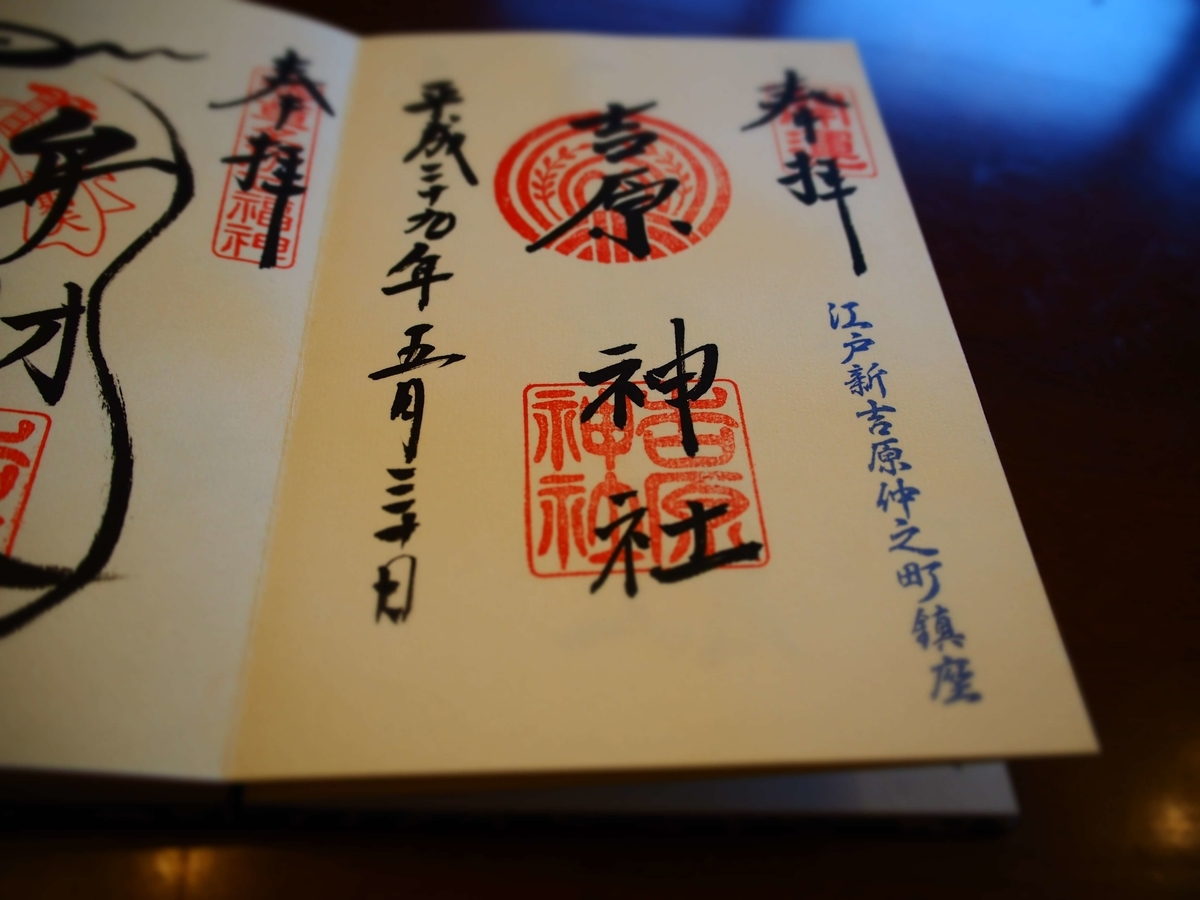 奉拝
江戸新吉原仲之町鎮座
吉原神社
吉原
神社
平成二十九年五月三十日
奉拝
福神
弁才